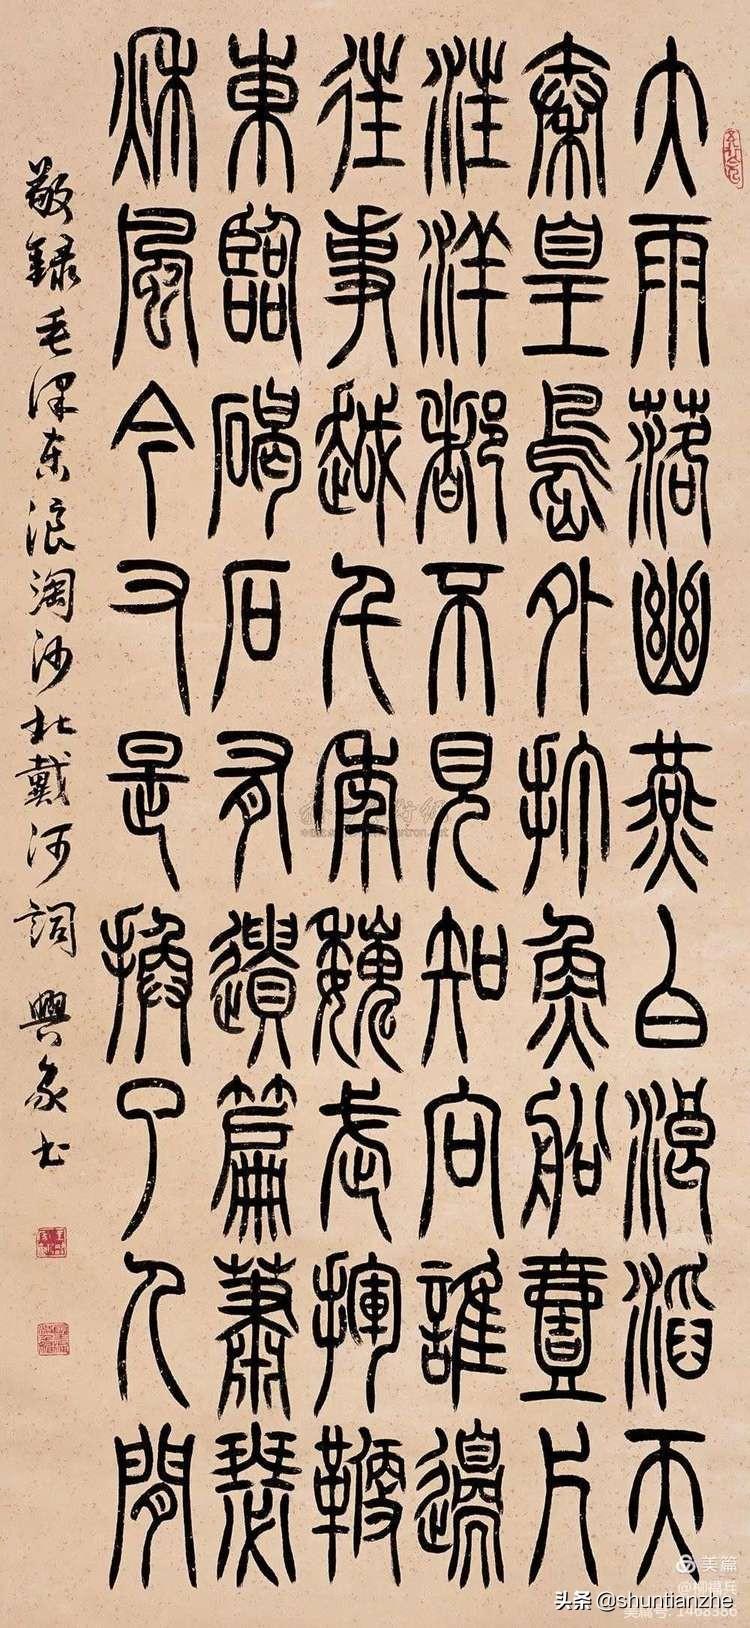 大雨落幽燕白浪滔天
秦皇島外打魚船壹片
汪洋都不見知向誰邊
往事越千年魏武揮鞭
東臨碣石有遺篇蕭瑟
秋風今又是換了人間
敬録毛泽东浪淘沙北戴河詞 興家书
美篇
头条 @shuntianzhe